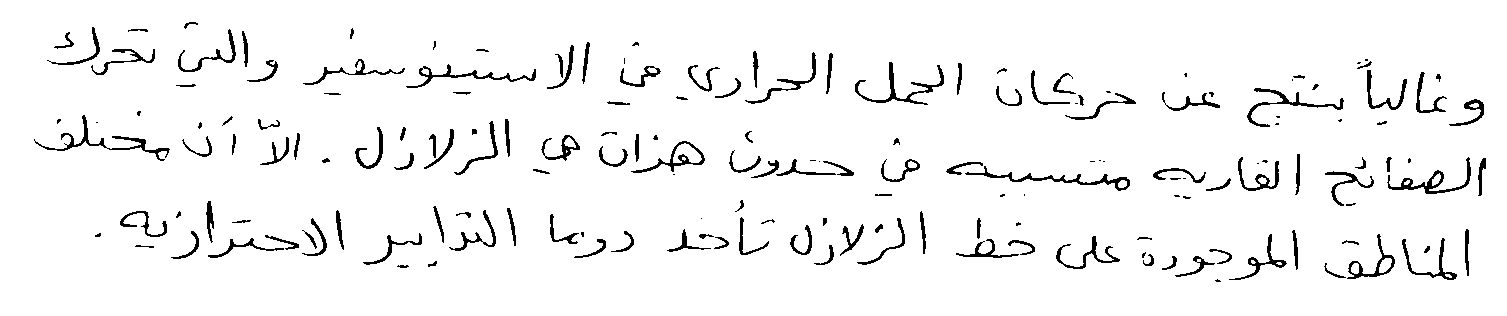 وغالباً ينتج عن حركات الحمل الحراري في الاستينوسفير والتي تحرك
الصفائح القاريه متسببه في حدوث هزات هي الزلازل . الاّ أن مختلف
المناطق الموجودة على خط الزلازل تأخذ دوما التدابير الاحترازيه .